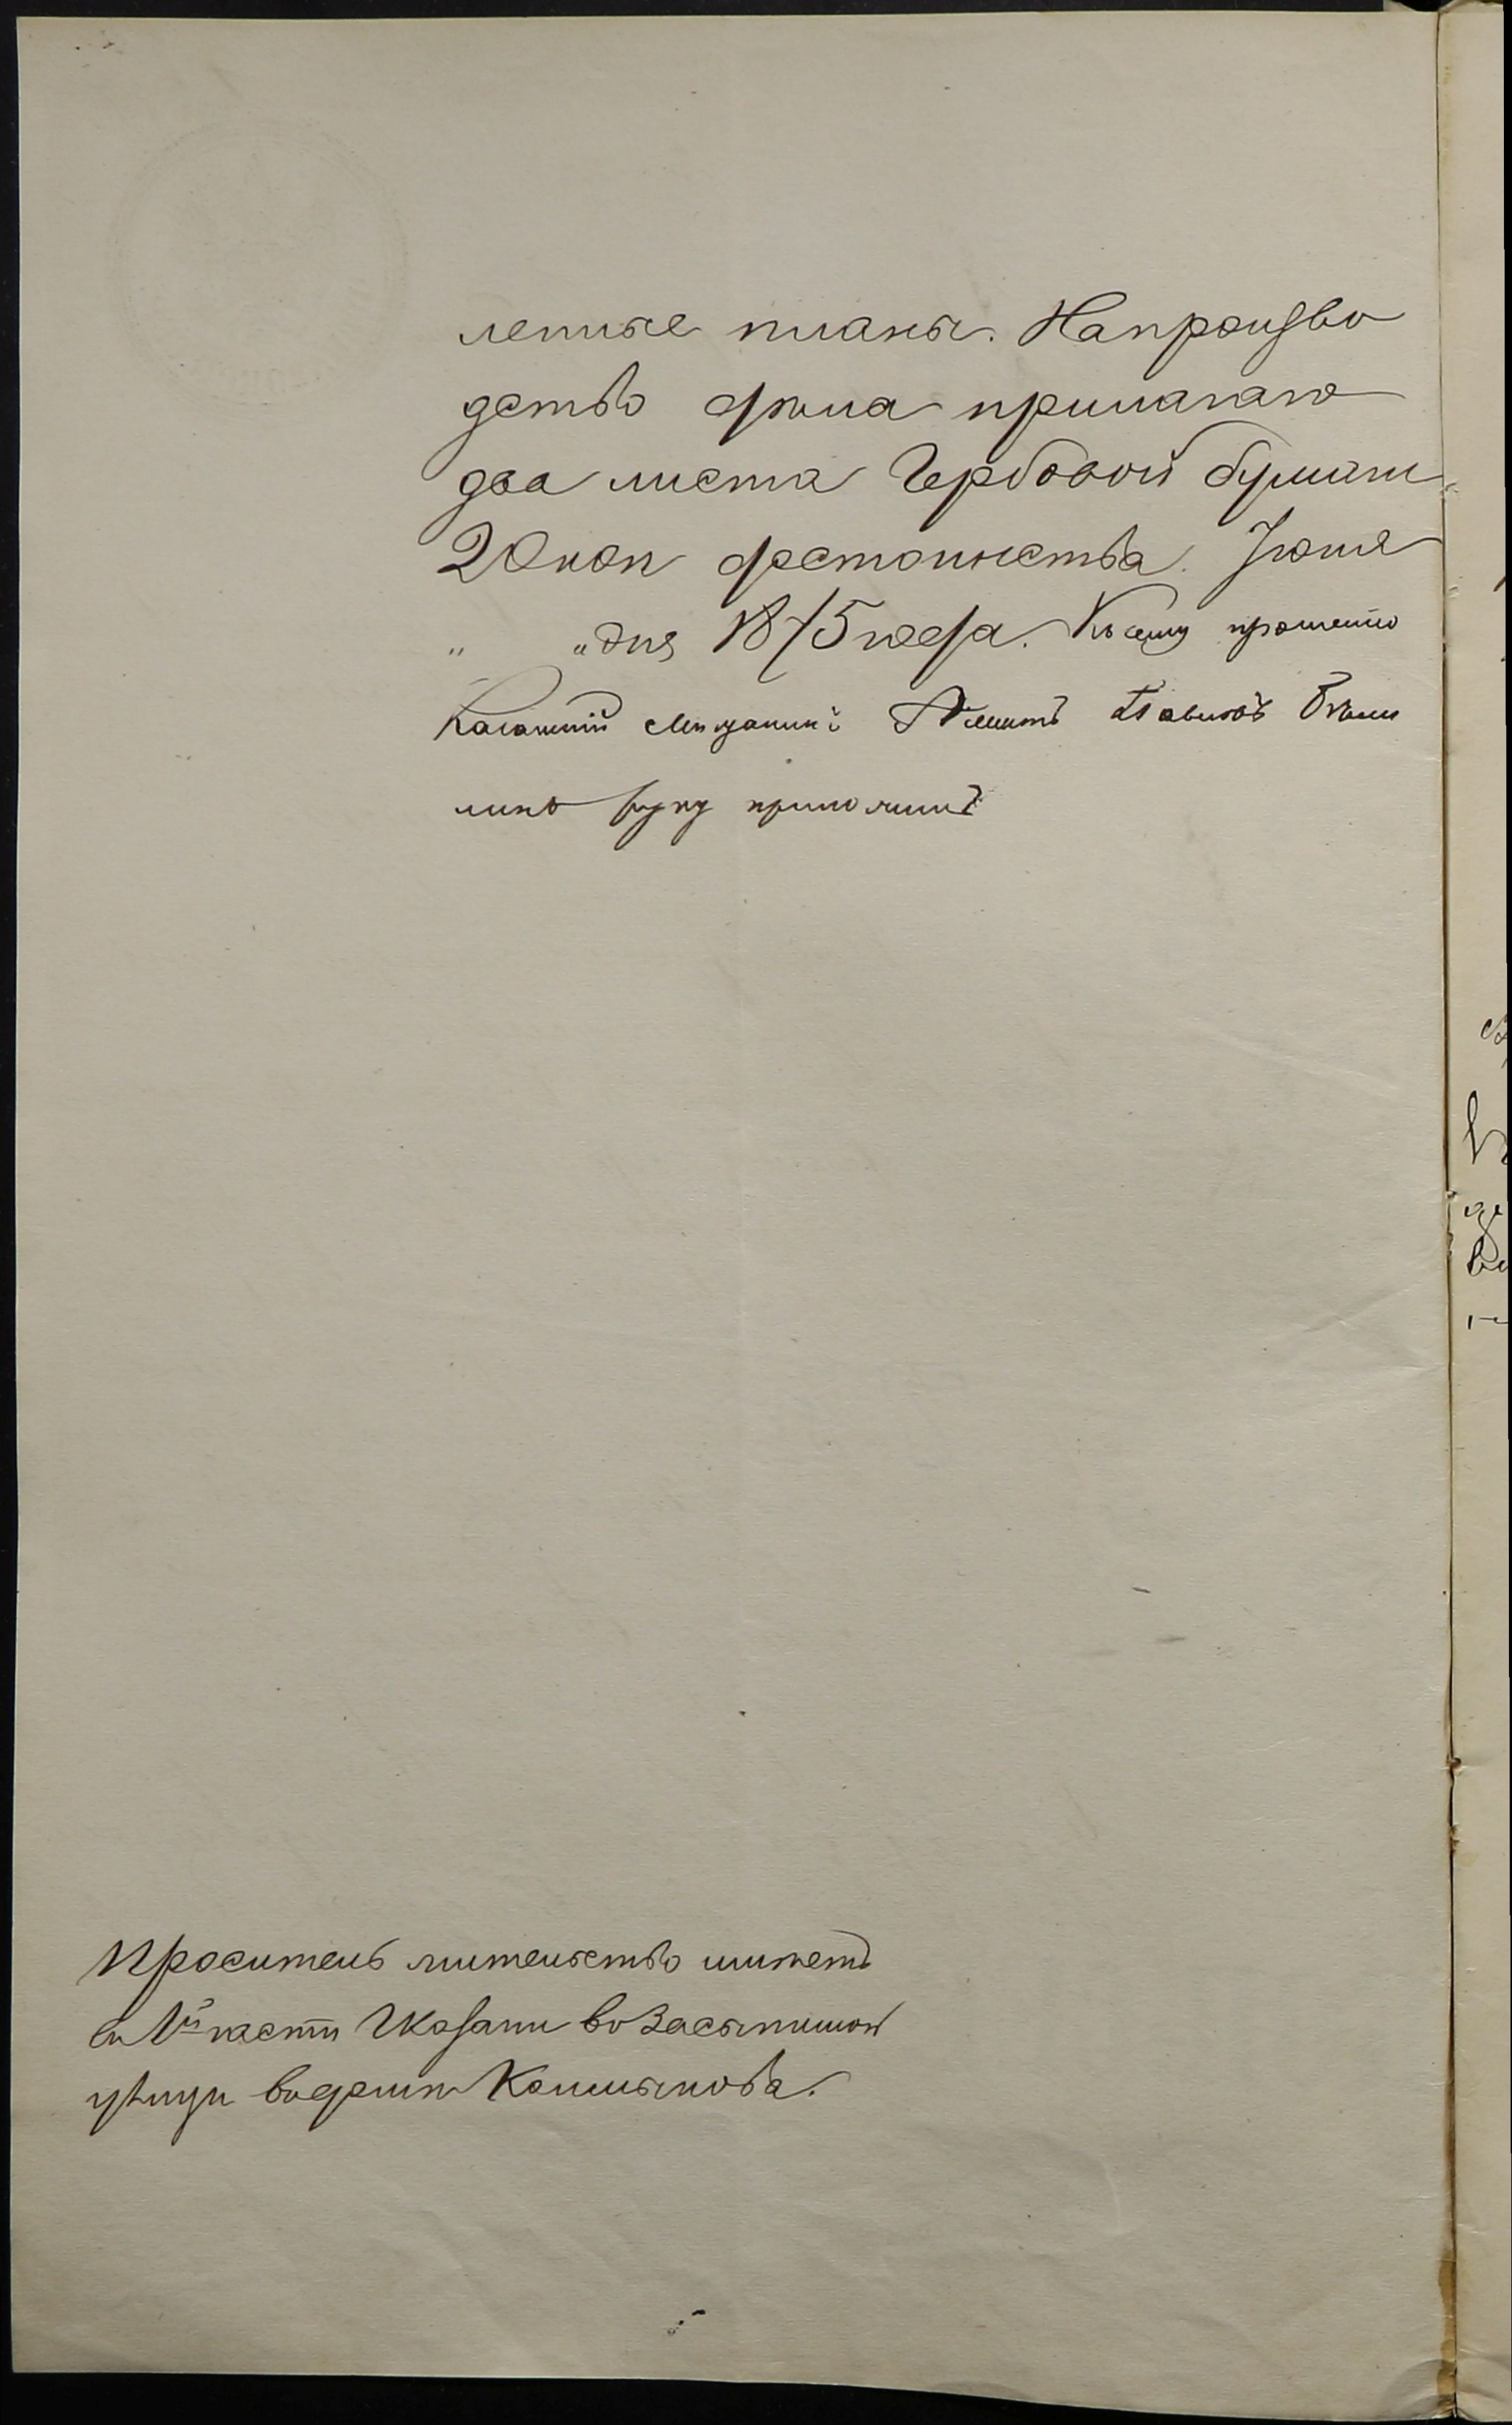 ленные планы. Напроизво
дство дѣла прилагаю
два листа Гербовой бумаги
20 коп достоинства. Іюня
" " дня 1875 года. Къ сему прошенію
Казанскій Мещанинъ Павловъ
руку приложилъ
Проситель жительство имѣетъ
в 1й части г Казани во Засыпкиной
улицы вдоми Колмыкова.